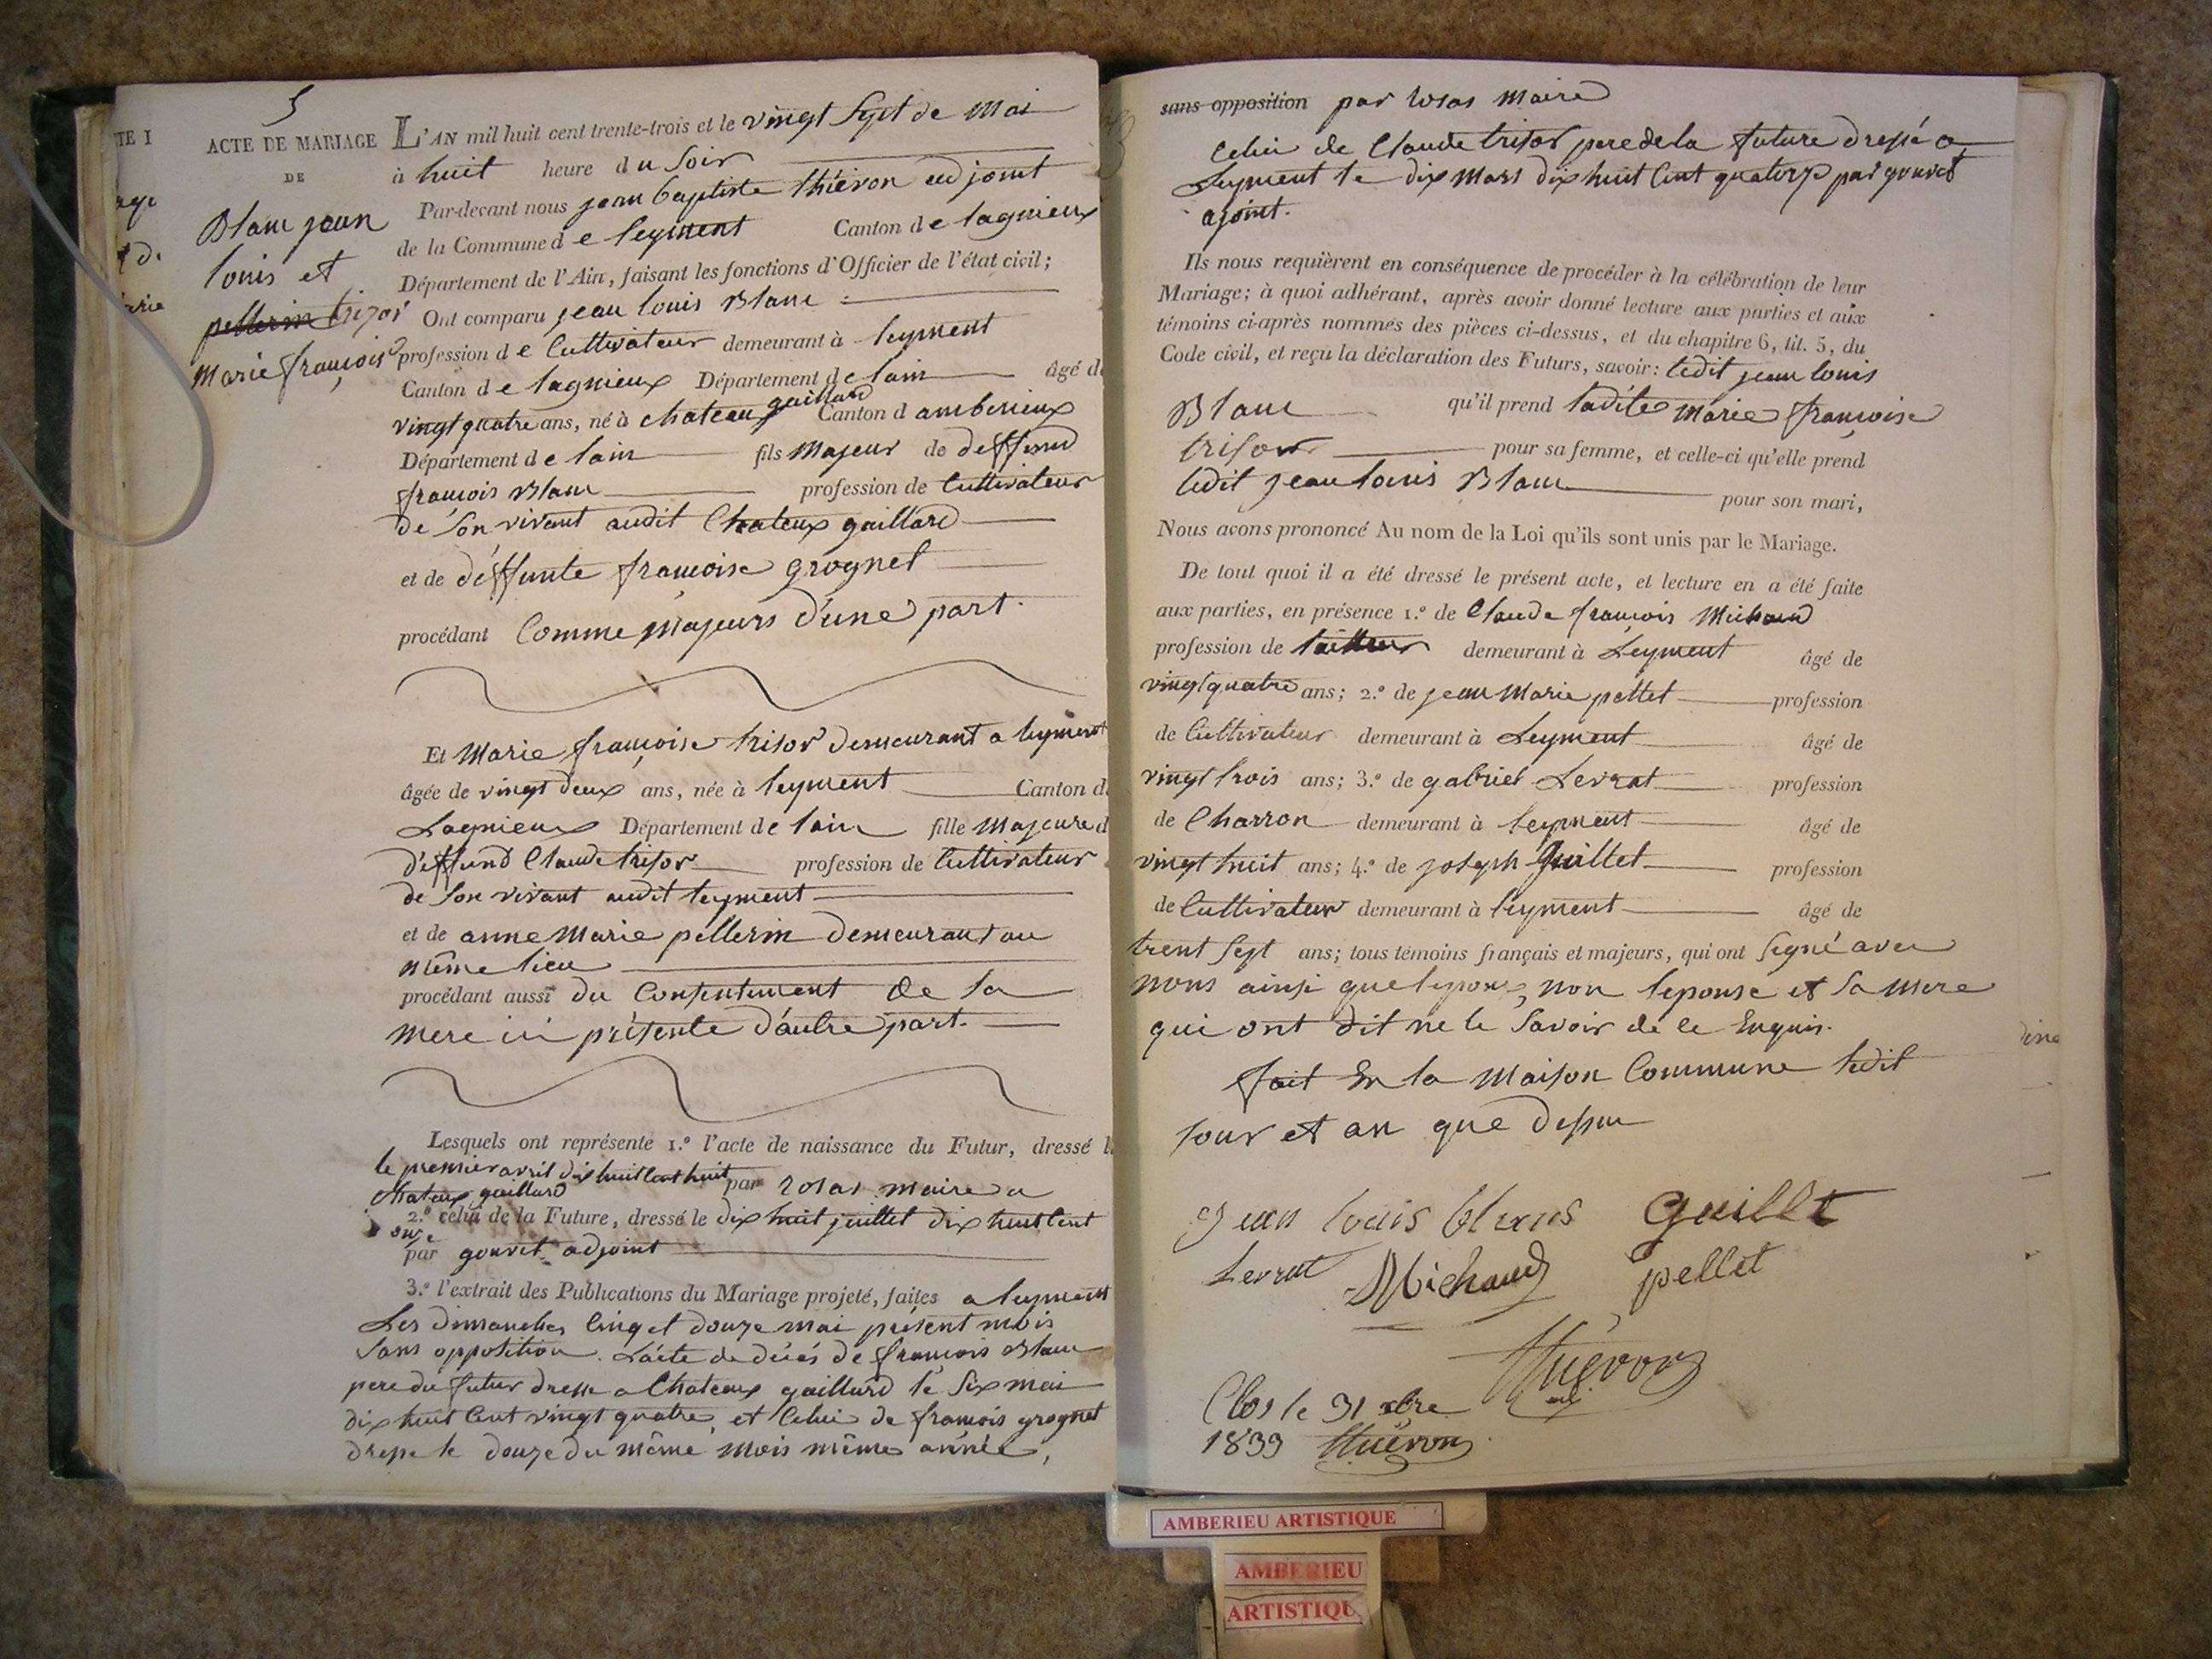 5
ACTE DE MARIAGE
DE
Blanc jean
louis et
pellerin trizor
Marie françoise
L'AN mil huit cent trente-trois et le vingt Sept de Mai
à huit heure du Soir
Par-devant nous jean baptiste thiévon adjoint
de la Commune de leyment Canton de lagnieux
Département de l'Ain, faisant les fonctions d'Officier de l'état civil;
Ont comparu jean louis Blanc
profession de Cultivateur demeurant à leyment
Canton de lagnieux Département de lain âgé d
vingt quatre ans, né à chateaux gaillard Canton d amberieux
Département de lain fils Majeur de deffund
françois Blanc profession de Cultivateur
de Son vivant audit Chateux gaillard
et de déffunte françoise grognet
procédant Comme Majeurs d'une part.
Et Marie françoise trisor demeurant a leyment
âgée de vingt deux ans, née à leyment Canton d
Lagnieux Département de lain fille Majeure d
déffund Claude trisor profession de Cultivateur
de Son vivant audit leyment
et de anne Marie pellerin demeurant au
même lieu
procédant aussi du Consentement de la
mere ici présente d'autre part.
Lesquels ont représenté 1.º l'acte de naissance du Futur, dressé l
le premier avril dix huit Cent huit par rosas maire a
Chateux gaillard
2.º celui de la Future, dressé le dix huit juillet dix huit Cent
onze
par gouvet adjoint
3.º l'extrait des Publications du Mariage projeté, faites a leyment
Les dimanches Cinq et douze mai présent mois
Sans opposition. L'acte de décés de françois Blanc
pere du futur dressé a Chateaux gaillard le Six mai
dix huit Cent vingt quatre, et Celui de françois grognet
dressé le douze du même mois même année,
sans opposition par rosas maire
Celui de Claude trisor pere de la future dressé a
Leyment le dix Mars dix huit Cent quatorze par gouvet
ajoint.
Ils nous requièrent en conséquence de procéder à la célébration de leur
Mariage; à quoi adhérant, après avoir donné lecture aux parties et aux
témoins ci-après nommés des pièces ci-dessus, et du chapitre 6, tit. 5, du
Code civil, et reçu la déclaration des Futurs, savoir: ledit jean louis
Blanc qu'il prend ladite Marie françoise
trisor pour sa femme, et celle-ci qu'elle prend
ledit jean louis Blanc pour son mari,
Nous avons prononcé Au nom de la Loi qu'ils sont unis par le Mariage.
De tout quoi il a été dressé le présent acte, et lecture en a été faite
aux parties, en présence 1.º de Claude françois Michaud
profession de tailleur demeurant à Leyment âgé de
vingt quatre ans; 2.º de jean Marie pellet profession
de Cultivateur demeurant à Leyment âgé de
vingt trois ans; 3.º de gabriel Levrat profession
de Charron demeurant à leyment âgé de
vingt huit ans; 4.º de joseph Guillet profession
de Cultivateur demeurant à leyment âgé de
trent Sept ans; tous témoins français et majeurs, qui ont Signé avec
nous ainsi que lepoux, non lepouse et Sa Mere
qui ont dit ne le Savoir de ce Enquis.
fait En la Maison Commune ledit
jour et an que dessu
Jean louis blanc Guillet
Levrat Michaud pellet
Thiévon
adj
Clos le 31 xbre
1833 Thiévon
AMBERIEU ARTISTIQUE
AMBERIEU
ARTISTIQU